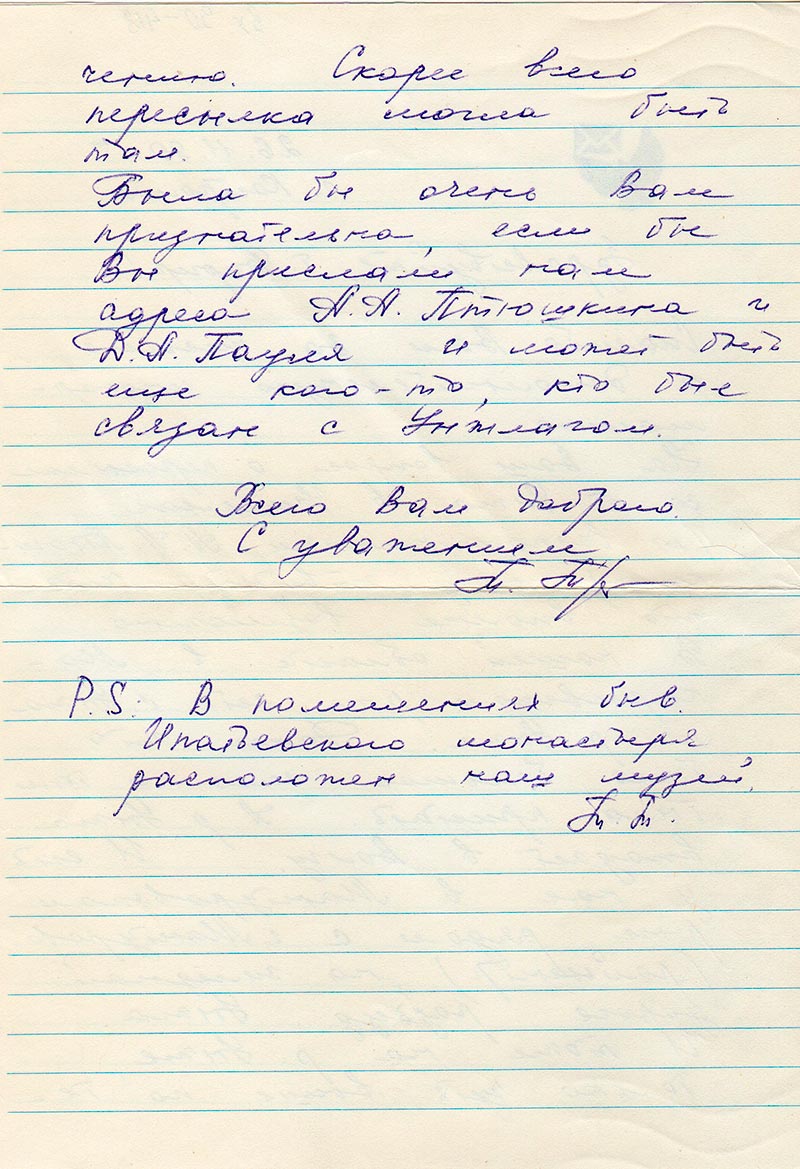 чению. Скорее всего
пересылка могла быть
там.
Была бы очень Вам
признательна, если бы
Вы прислали нам
адреса А.А. Птюшкина и
Д.А. Пауля и может быть
еще кого-то, кто был
связан с Унжлагом.
Всего Вам доброго.
С уважением
Т.
P.S: В помещениях быв.
Ипатьевского монастыря
расположен наш музей.
Т. Т.